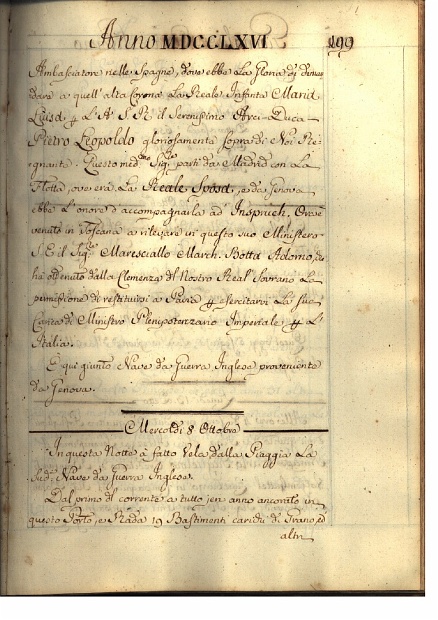 Anno MDCCLXVI 199
Ambasciatore nelle Spagne, dove ebbe La Gloria di diman
dare a quell'alta Corona La Reale Infanta Maria
Luisa p L'A. S. R. il Serenissimo Arci-Duca
Pietro Leopoldo gloriosamente sopra di Noi Re-
gnante. Questo med.mo Sig.re partì da Madrid con La
Flotta, ove era La Reale Sposa, e da Genova
ebbe L'onore d'accompagnarla ad Inspruch. Ora è
venuto in Toscana a rilevare in questo suo Ministero
S. E. il Sig.re Maresciallo March. Botta Adorno, che
ha ottenuto dalla Clemenza del Nostro Real Sovrano La
permissione di restituirsi a Pavia p esercitarvi La sua
Carica di Ministro Plenipotenziario Imperiale p L'
Italia.
È qui giunto Nave da Guerra Inglese proveniente
da Genova.
Mercoldì 8 Ottobre
In questa Notte à fatto Vela dalla Piaggia La
Sud.a Nave da Guerra Inglese.
Dal primo del corrente a tutto jeri anno ancorato in
questo Porto, e Rada 19 Bastimenti carichi di Grano, ed
altri